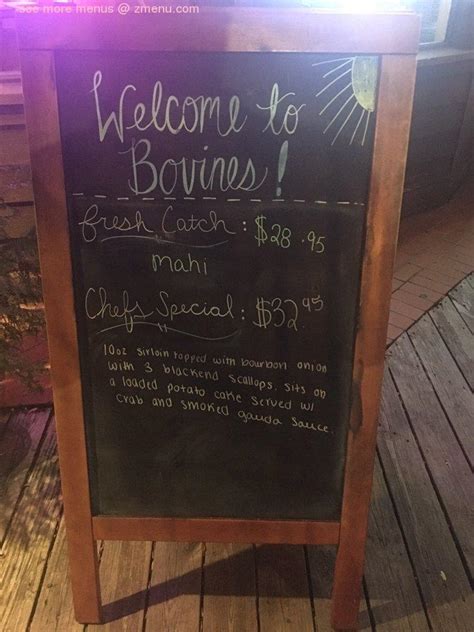 see more menus @ zmenu.com
Welcome to
Bovines!
fresh Catch : $28.95
mahi
Chefs Special : $32.95
10oz sirloin topped with bourbon onion
with 3 blackend scallops. sits on
a loaded potato cake served w/
crab and smoked gauda sauce.